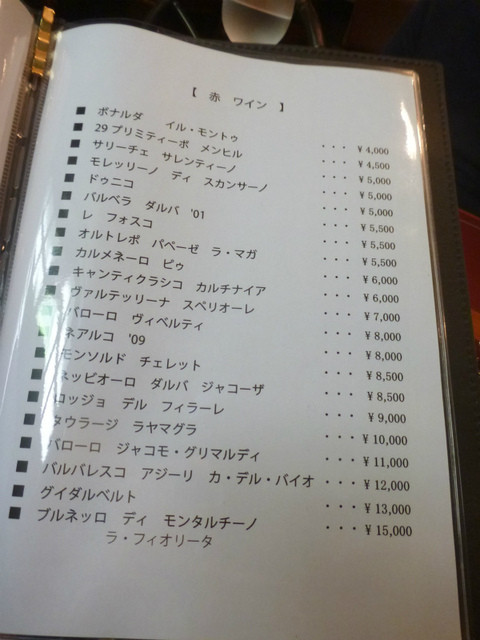 【 赤 ワイン 】
■ ボナルダ イル・モントゥ ・・・ ¥4,000
■ 29 プリミティーボ メンヒル ・・・ ¥4,500
■ サリーチェ サレンティーノ ・・・ ¥5,000
■ モレッリーノ ディ スカンサーノ ・・・ ¥5,000
■ ドゥニコ ・・・ ¥5,000
■ バルベラ ダルバ '01 ・・・ ¥5,500
■ レ フォスコ ・・・ ¥5,500
■ オルトレポ パベーゼ ラ・マガ ・・・ ¥5,500
■ カルメネーロ ピゥ ・・・ ¥6,000
■ キャンティクラシコ カルチナイア ・・・ ¥6,000
■ ヴァルテッリーナ スペリオーレ ・・・ ¥7,000
■ バローロ ヴィベルティ ・・・ ¥8,000
■ ネアルコ '09 ・・・ ¥8,000
■ モンソルド チェレット ・・・ ¥8,500
■ ネッビオーロ ダルバ ジャコーザ ・・・ ¥8,500
■ ロッジョ デル フィラーレ ・・・ ¥9,000
■ タウラージ ラヤマグラ ・・・ ¥10,000
■ バローロ ジャコモ・グリマルディ ・・・ ¥11,000
■ バルバレスコ アジーリ カ・デル・バイオ ・・・ ¥12,000
■ グイダルベルト ・・・ ¥13,000
■ ブルネッロ ディ モンタルチーノ ・・・ ¥15,000
ラ・フィオリータ